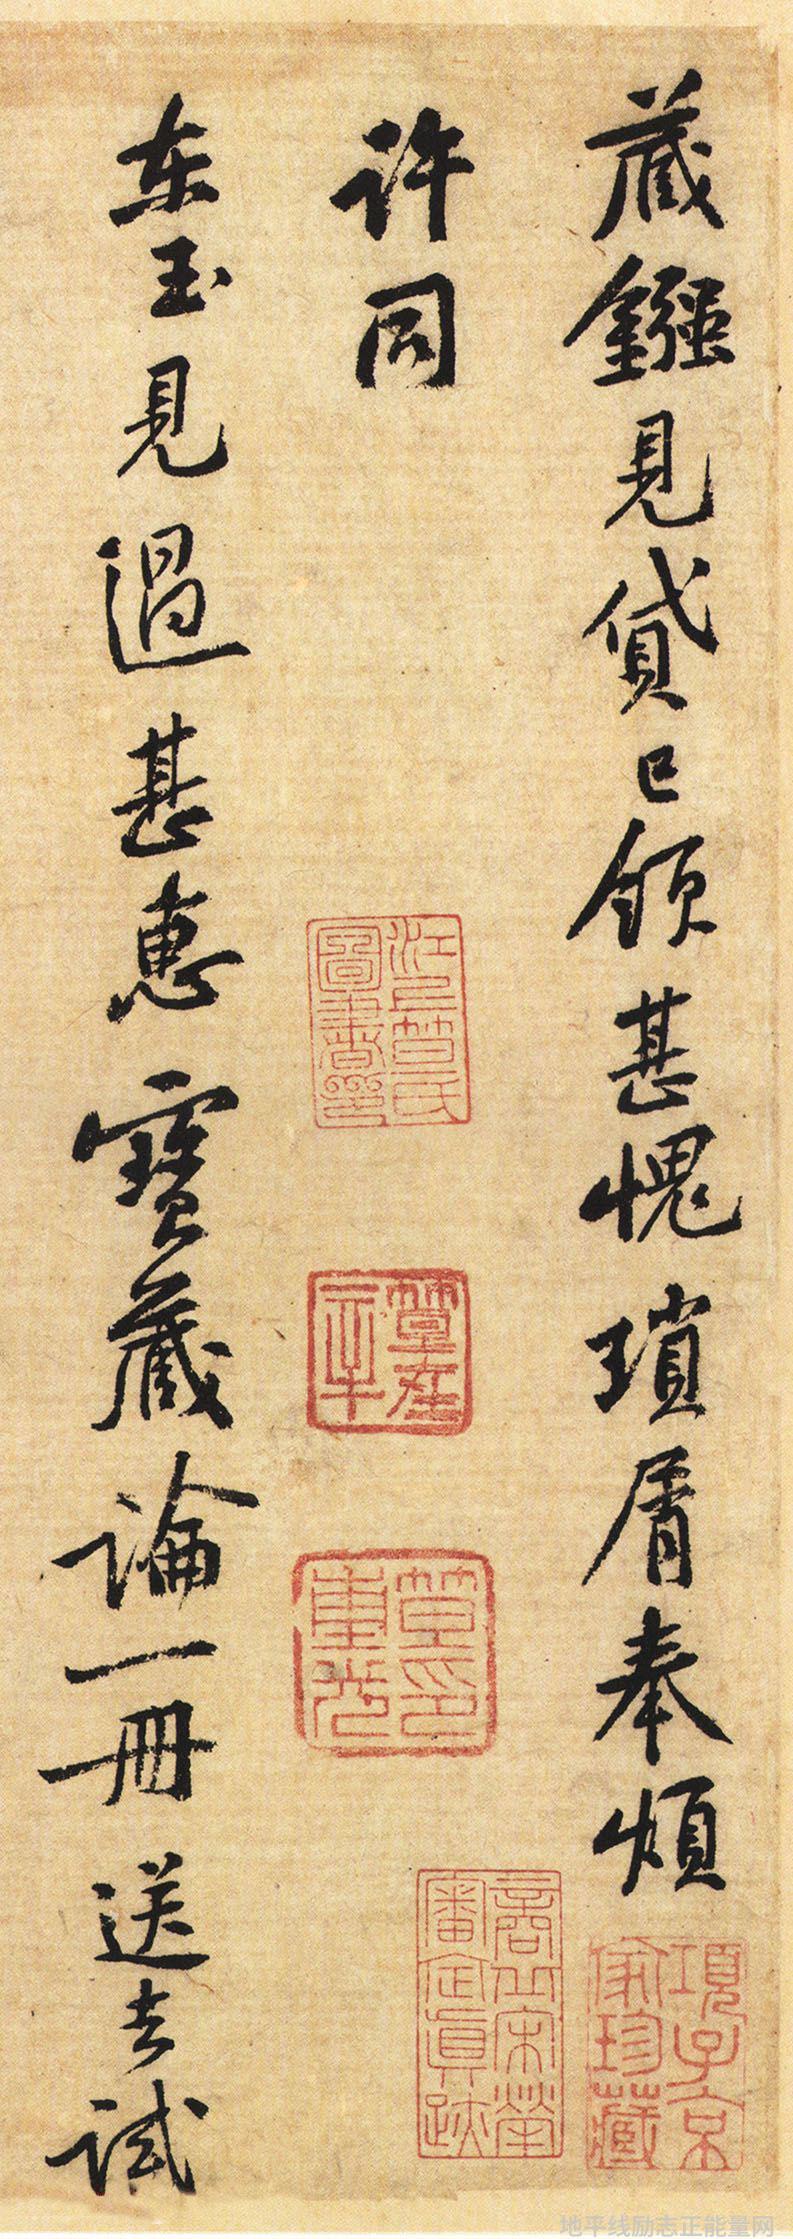 藏鏹見貸已領甚愧瑣屑奉煩
許同
东玉見過甚惠寶藏論一冊送去試
江上笪氏圖書印
笪在辛
笪印重光
商丘宋犖審定真跡
項子京家珍藏
地平线励志正能量网